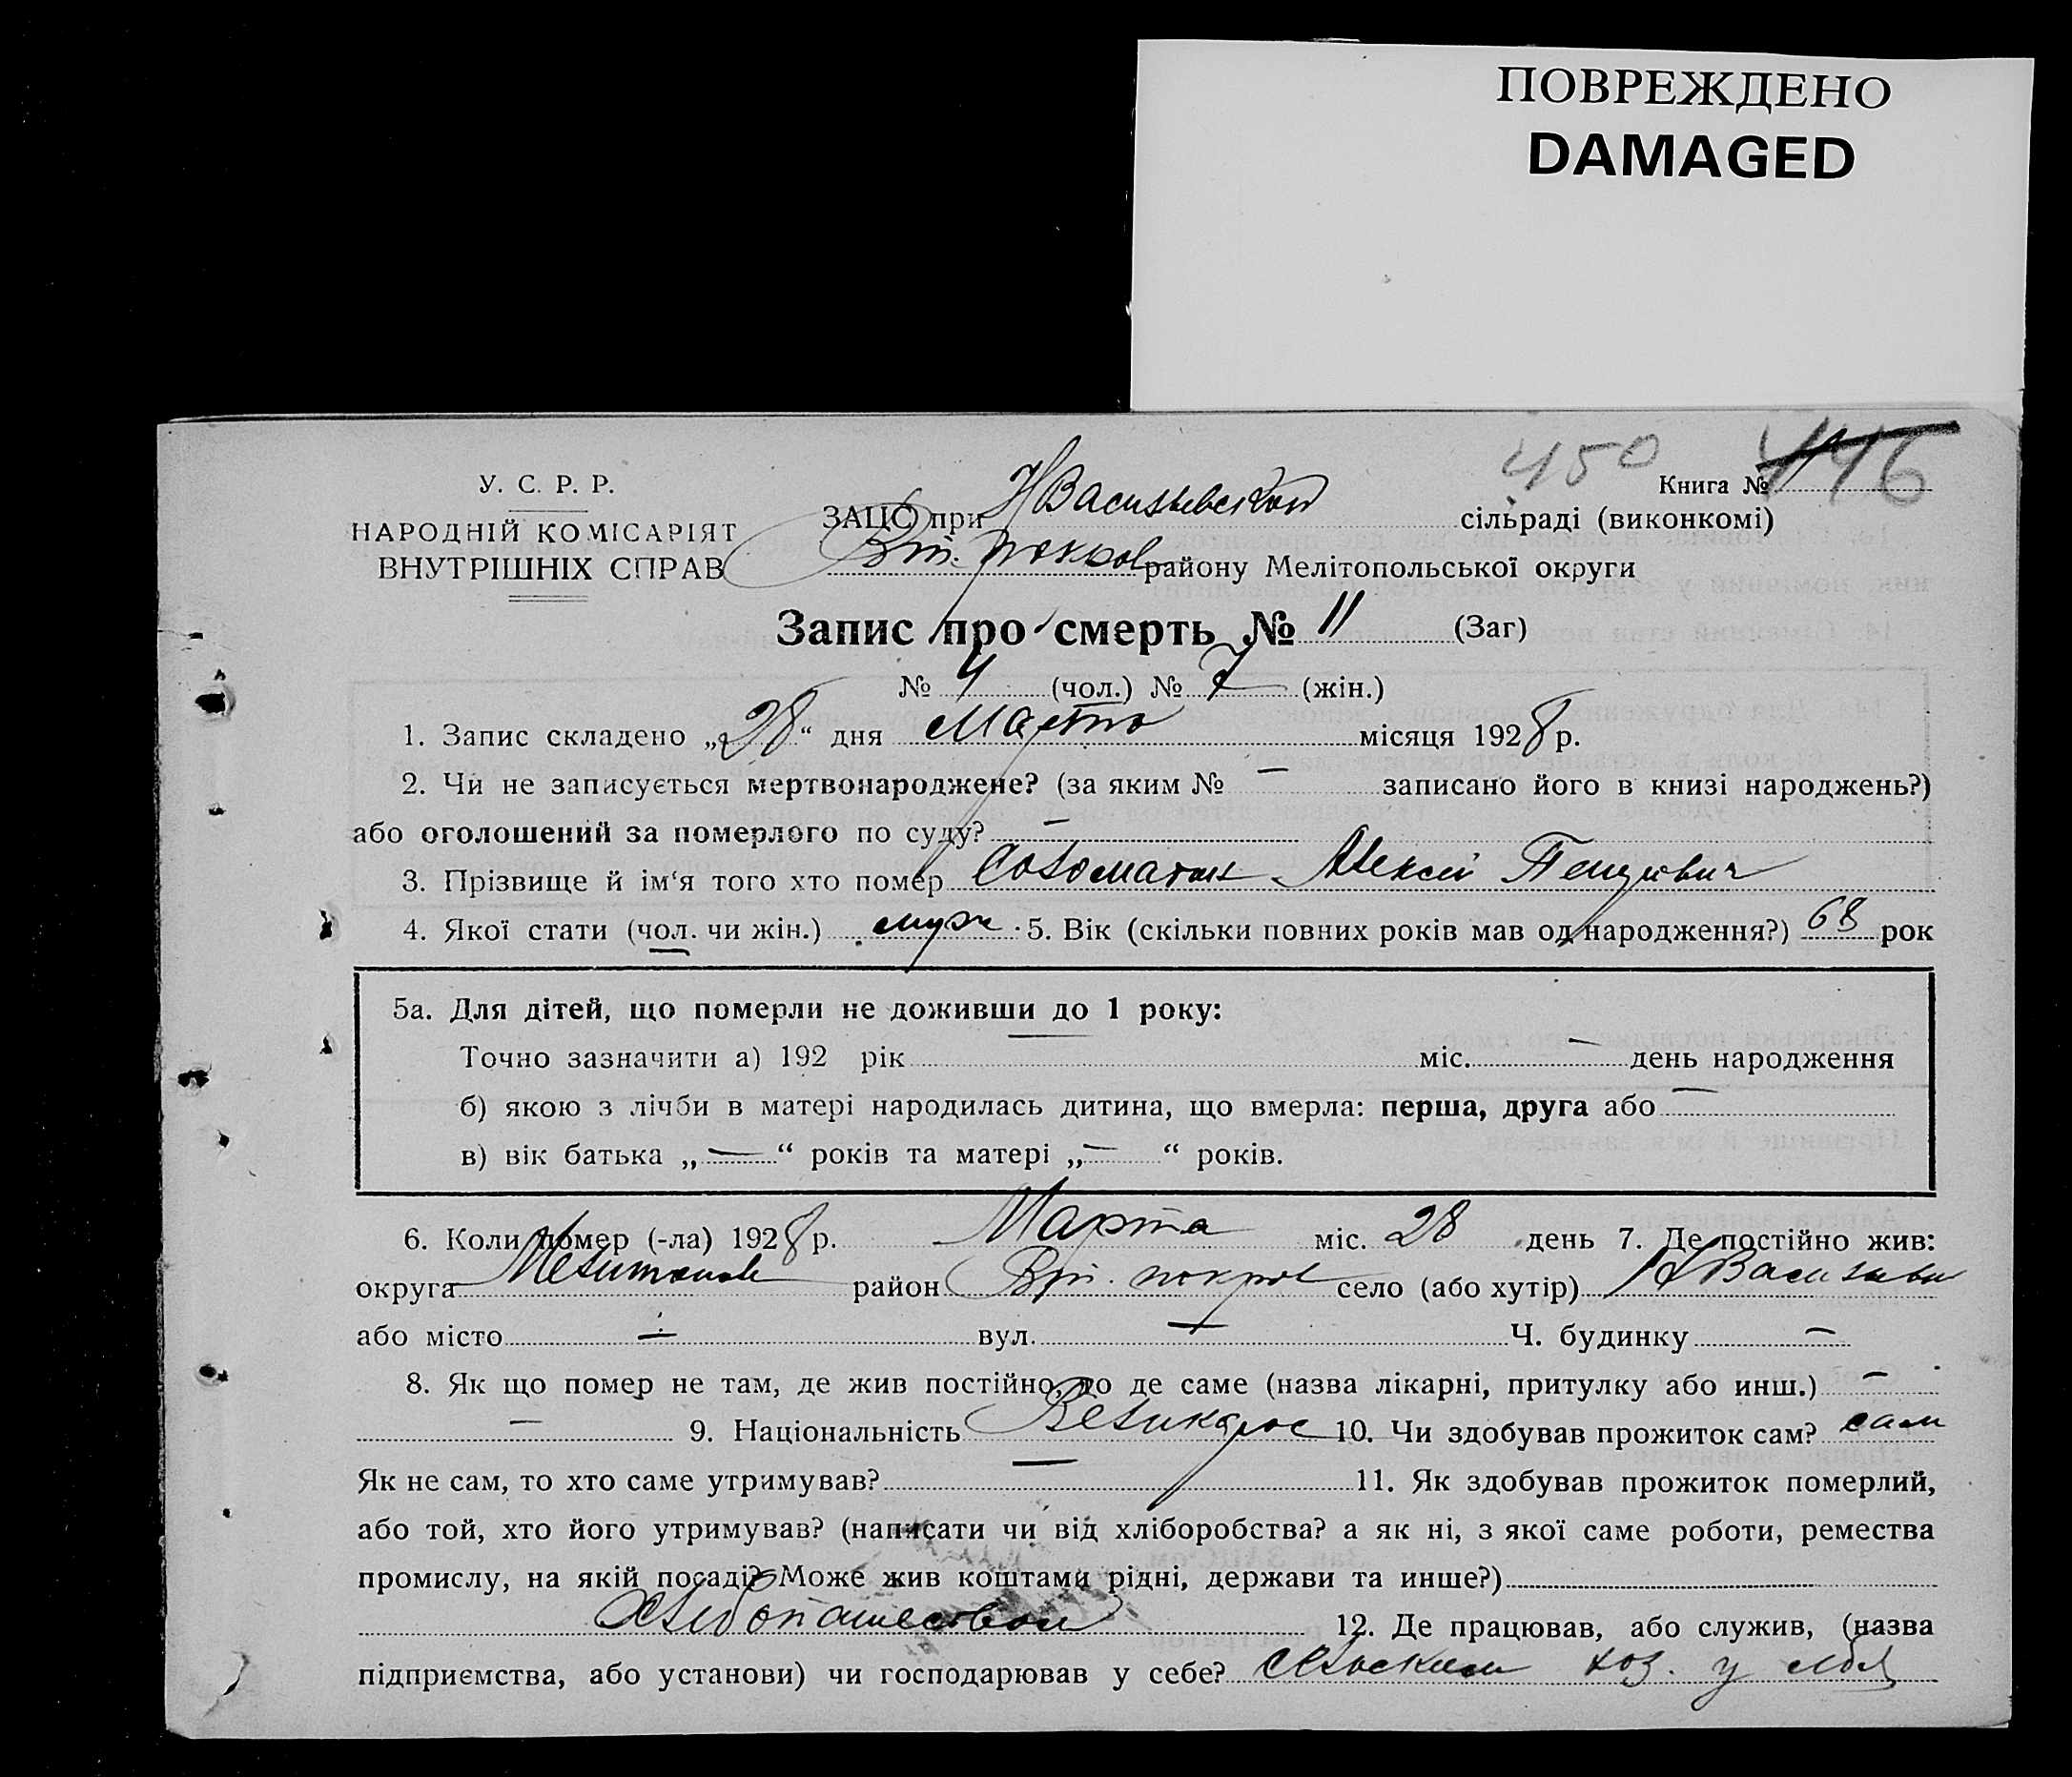 ПОВРЕЖДЕНО
DAMAGED
450 446
У. С. Р. Р.
Книга №
НАРОДНІЙ КОМІСАРІЯТ
ВНУТРІШНІХ СПРАВ
ЗАЦС при НВасильевской сільраді (виконкомі)
Вт. покров району Мелітопольської округи
Запис про смерть № 11 (Заг)
№ 4 (чол.) № 7 (жін.)
1. Запис складено „28“ дня Марта місяця 1928 р.
2. Чи не записується мертвонароджене? (за яким № — записано його в книзі народжень?)
або оголошений за померлого по суду? —
3. Прізвище й ім‘я того хто помер Соломатин Алексей
4. Якої стати (чол. чи жін.) муж. 5. Вік (скільки повних років мав од народження?) 68 рок
5а. Для дітей, що померли не доживши до 1 року:
Точно зазначити а) 192 рік — міс. — день народження
б) якою з лічби в матері народилась дитина, що вмерла: перша, друга або —
в) вік батька „—“ років та матері „—“ років.
6. Коли помер (-ла) 1928 р. Марта міс. 28 день 7. Де постійно жив:
округа район Вт. покров село (або хутір) НВасильев
або місто — вул. — Ч. будинку —
8. Як що помер не там, де жив постійно, то де саме (назва лікарні, притулку або инш.) —
— 9. Національність Великорос 10. Чи здобував прожиток сам? сам
Як не сам, то хто саме утримував? — 11. Як здобував прожиток померлий,
або той, хто його утримував? (написати чи від хліборобства? а як ні, з якої саме роботи, ремества
промислу, на якій посаді? Може жив коштами рідні, держави та инше?)
Хлебопашеством 12. Де працював, або служив, (назва
підприємства, або установи) чи господарював у себе? сельским хоз. у себя